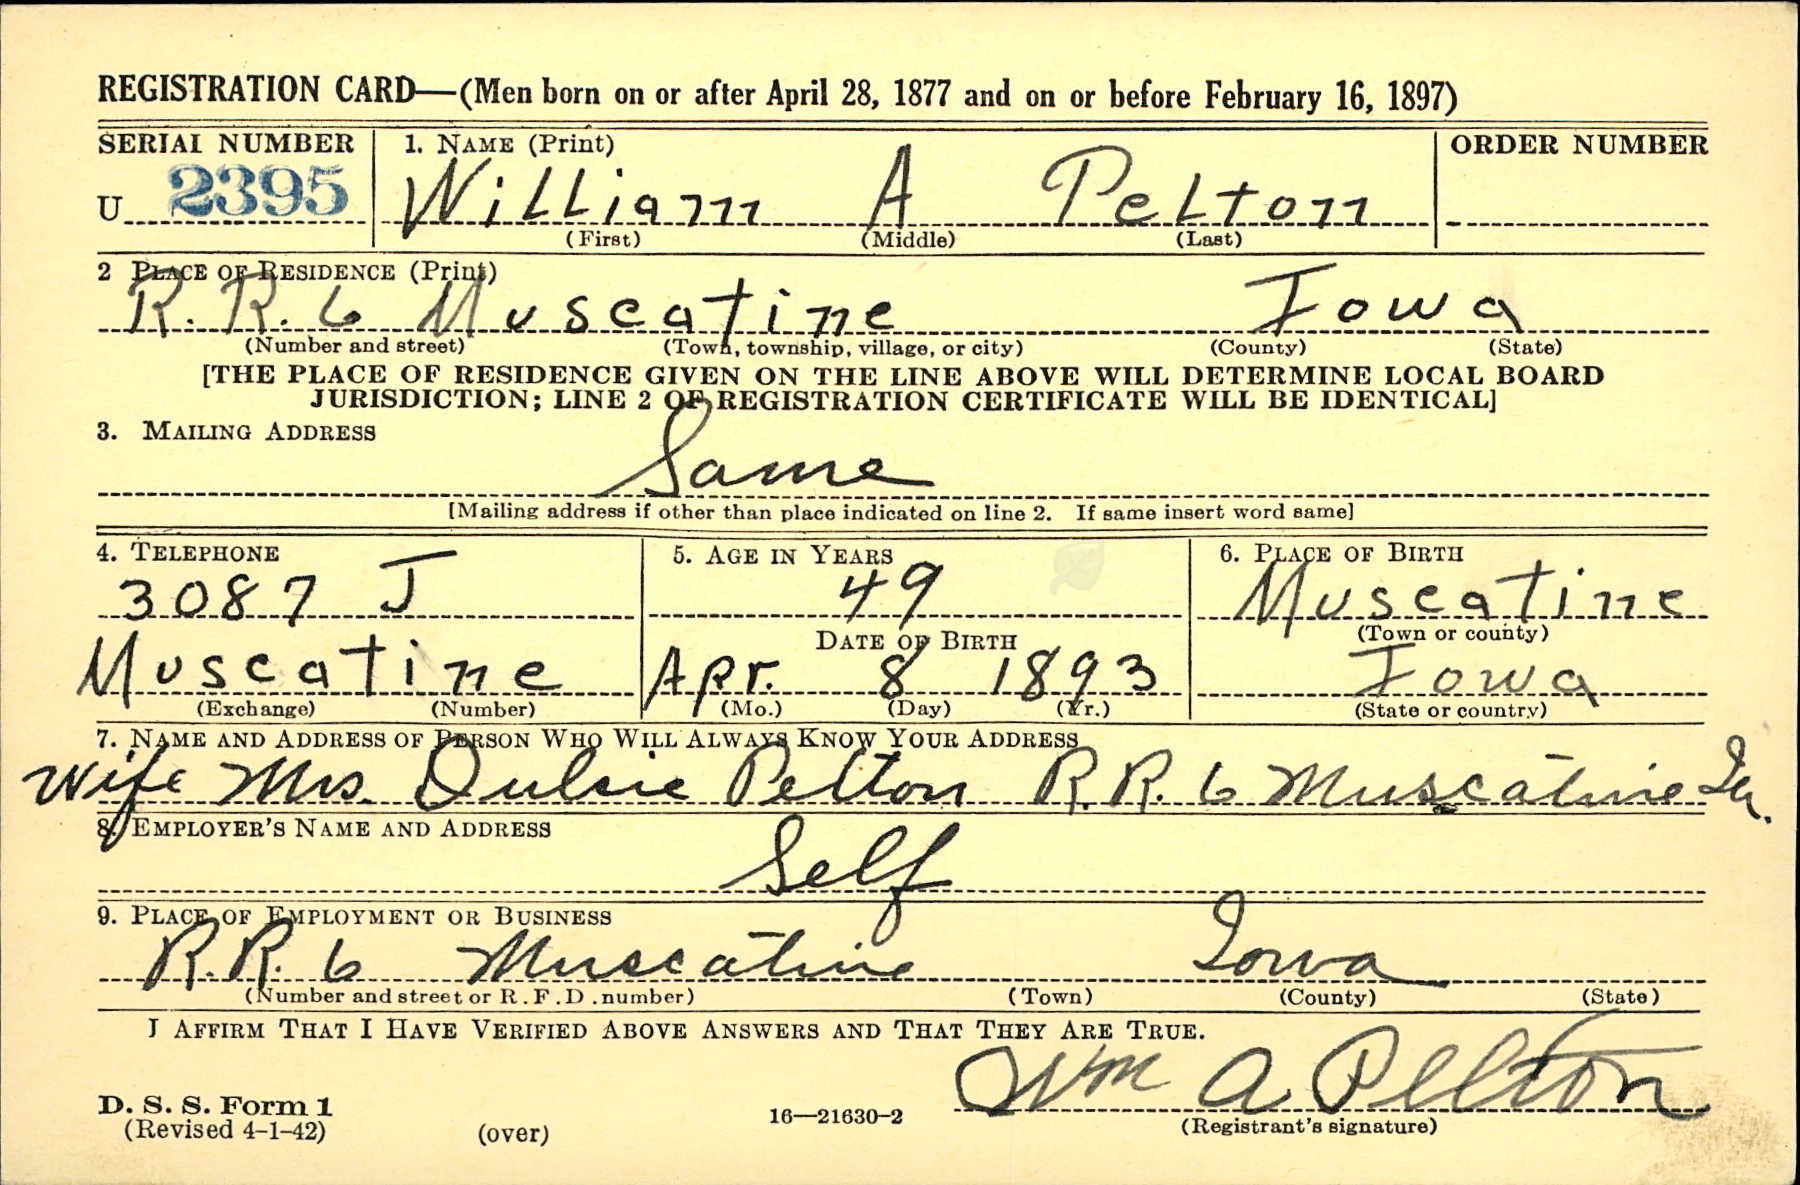 REGISTRATION CARD—(Men born on or after April 28, 1877 and on or before February 16, 1897)
SERIAL NUMBER 1. NAME (Print) ORDER NUMBER
U 2395 William A Pelton
(First) (Middle) (Last)
2 PLACE OF RESIDENCE (Print)
R. R. 6 Muscatine Iowa
(Number and street) (Town, township, village, or city) (County) (State)
[THE PLACE OF RESIDENCE GIVEN ON THE LINE ABOVE WILL DETERMINE LOCAL BOARD
JURISDICTION; LINE 2 OF REGISTRATION CERTIFICATE WILL BE IDENTICAL]
3. MAILING ADDRESS
Same
[Mailing address if other than place indicated on line 2. If same insert word same]
4. TELEPHONE 5. AGE IN YEARS 6. PLACE OF BIRTH
3087 J 49 Muscatine
DATE OF BIRTH (Town or county)
Muscatine Apr. 8 1893 Iowa
(Exchange) (Number) (Mo.) (Day) (Yr.) (State or country)
7. NAME AND ADDRESS OF PERSON WHO WILL ALWAYS KNOW YOUR ADDRESS
Wife Mrs. Dulsie Pelton R. R. 6 Muscatine Ia.
8. EMPLOYER'S NAME AND ADDRESS
Self
9. PLACE OF EMPLOYMENT OR BUSINESS
R. R. 6 Muscatine Iowa
(Number and street or R. F. D. number) (Town) (County) (State)
I AFFIRM THAT I HAVE VERIFIED ABOVE ANSWERS AND THAT THEY ARE TRUE.
Wm A Pelton
D. S. S. Form 1
(Revised 4-1-42) (over) 16—21630-2 (Registrant's signature)